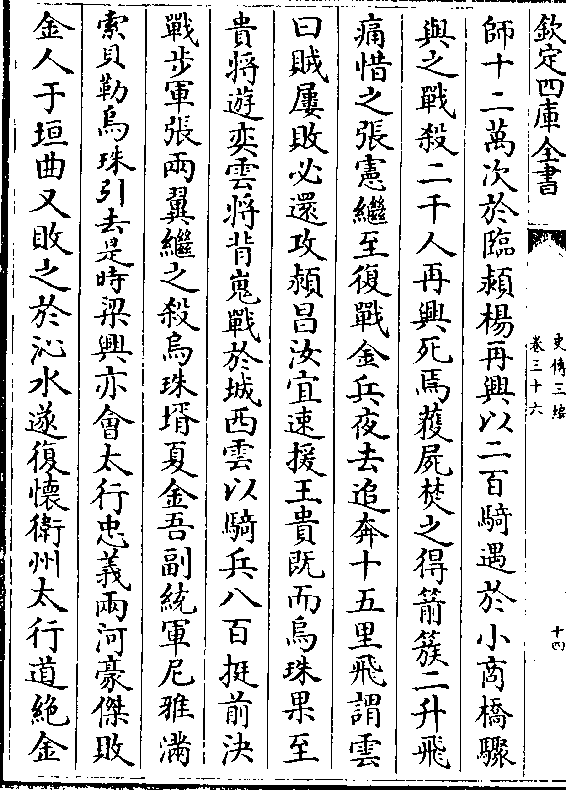 欽定四庫全書
史傳三編
卷三十六
十四
師十二萬次於臨潁楊再興以二百騎遇於小商橋驟
與之戰殺二千人再興死焉獲屍焚之得箭簇二升飛
痛惜之張憲繼至復戰金兵夜去追奔十五里飛謂雲
曰賊屢敗必還攻潁昌汝宜速援王貴既而烏珠果至
貴將遊奕雲將背嵬戰於城西雲以騎兵八百挺前決
戰步軍張兩翼繼之殺烏珠壻夏金吾副統軍尼雅滿
索貝勒烏珠引去是時梁興亦會太行忠義兩河豪傑敗
金人于垣曲又敗之於沁水遂復懷衛州太行道絶金